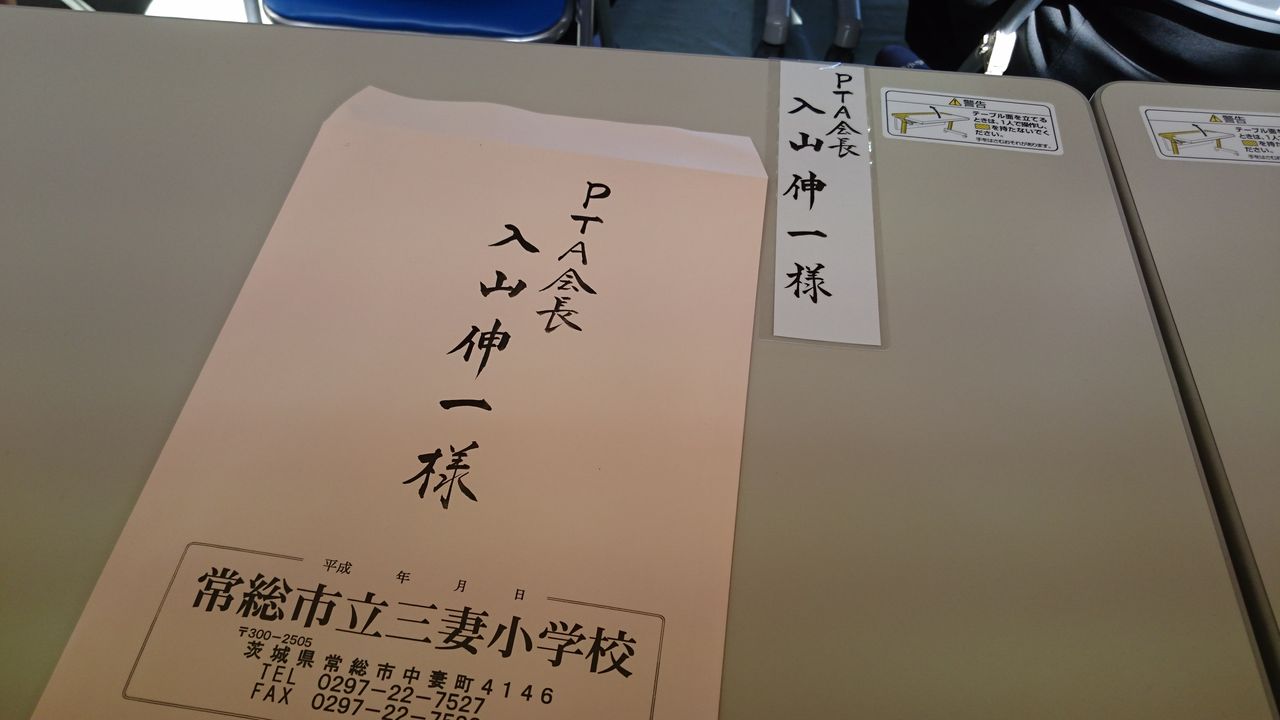 PTA会長
入山伸一様
平成 年 月 日
常総市立三妻小学校
〒300-2505
茨城県常総市中妻町4146
TEL 0297-22-7527
FAX 0297-22-75
PTA会長
入山伸一様
警告
テーブル面を立てる
ときは、1人で操作し、
を持たないでく
ださい。
手をはさむおそれがあります。
警告
テーブル面
ときは、1人
を持た
ださい。
手をはさむ